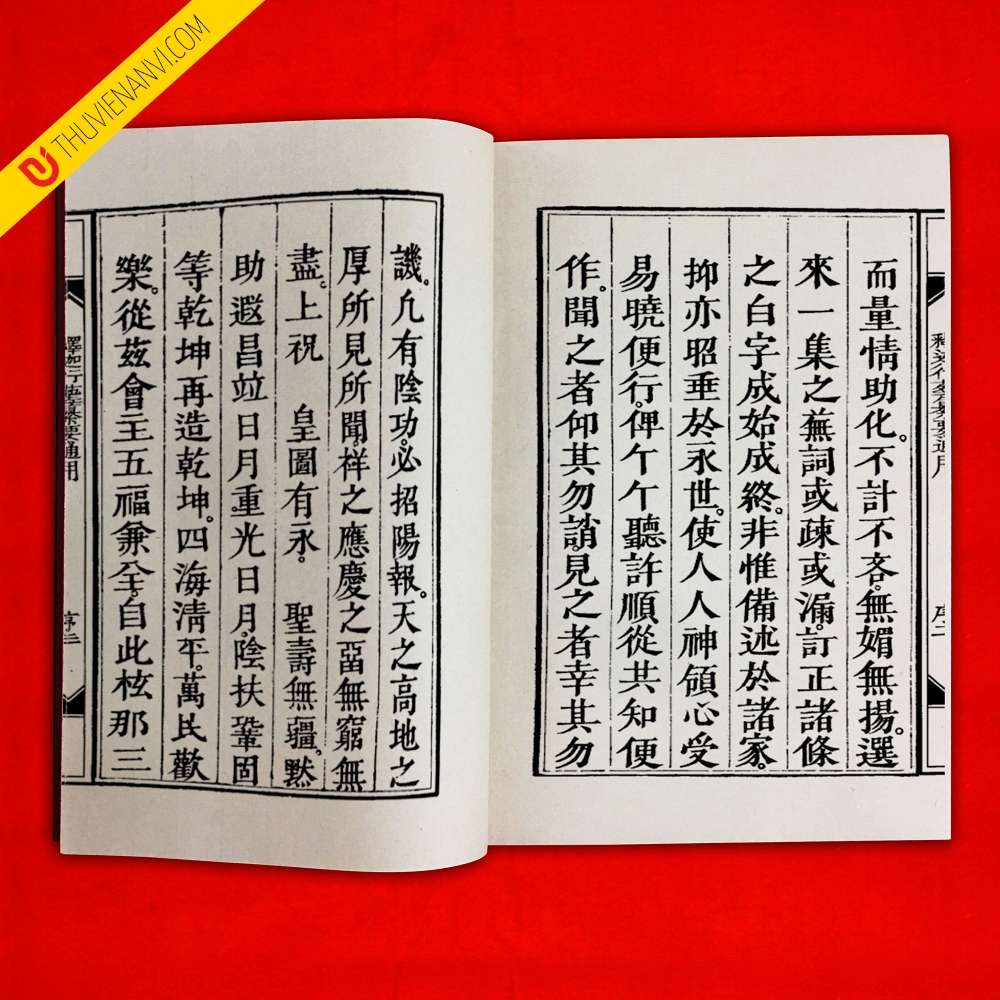 而量情助化。不計不吝。無媚無揚。選
來一集之蕪詞或疎或漏。訂正諸條
之白字成始成終。非惟備述於諸家。
抑亦昭垂於永世。使人人神領心受
易曉便行。俾亇亇聽許順從其知便
作。聞之者仰其勿誚。見之者幸其勿
譏。凢有陰功。必招陽報。天之高地之
厚所見所聞。祥之應慶之畱無窮無
盡。上祝 皇圖有永。 聖壽無疆。黙
助遐昌竝日月重光日月。陰扶鞏固
等乾坤再造乾坤。四海清平。萬民歡
樂。從茲會主五福兼全。自此那三
THUVIENANVI.COM